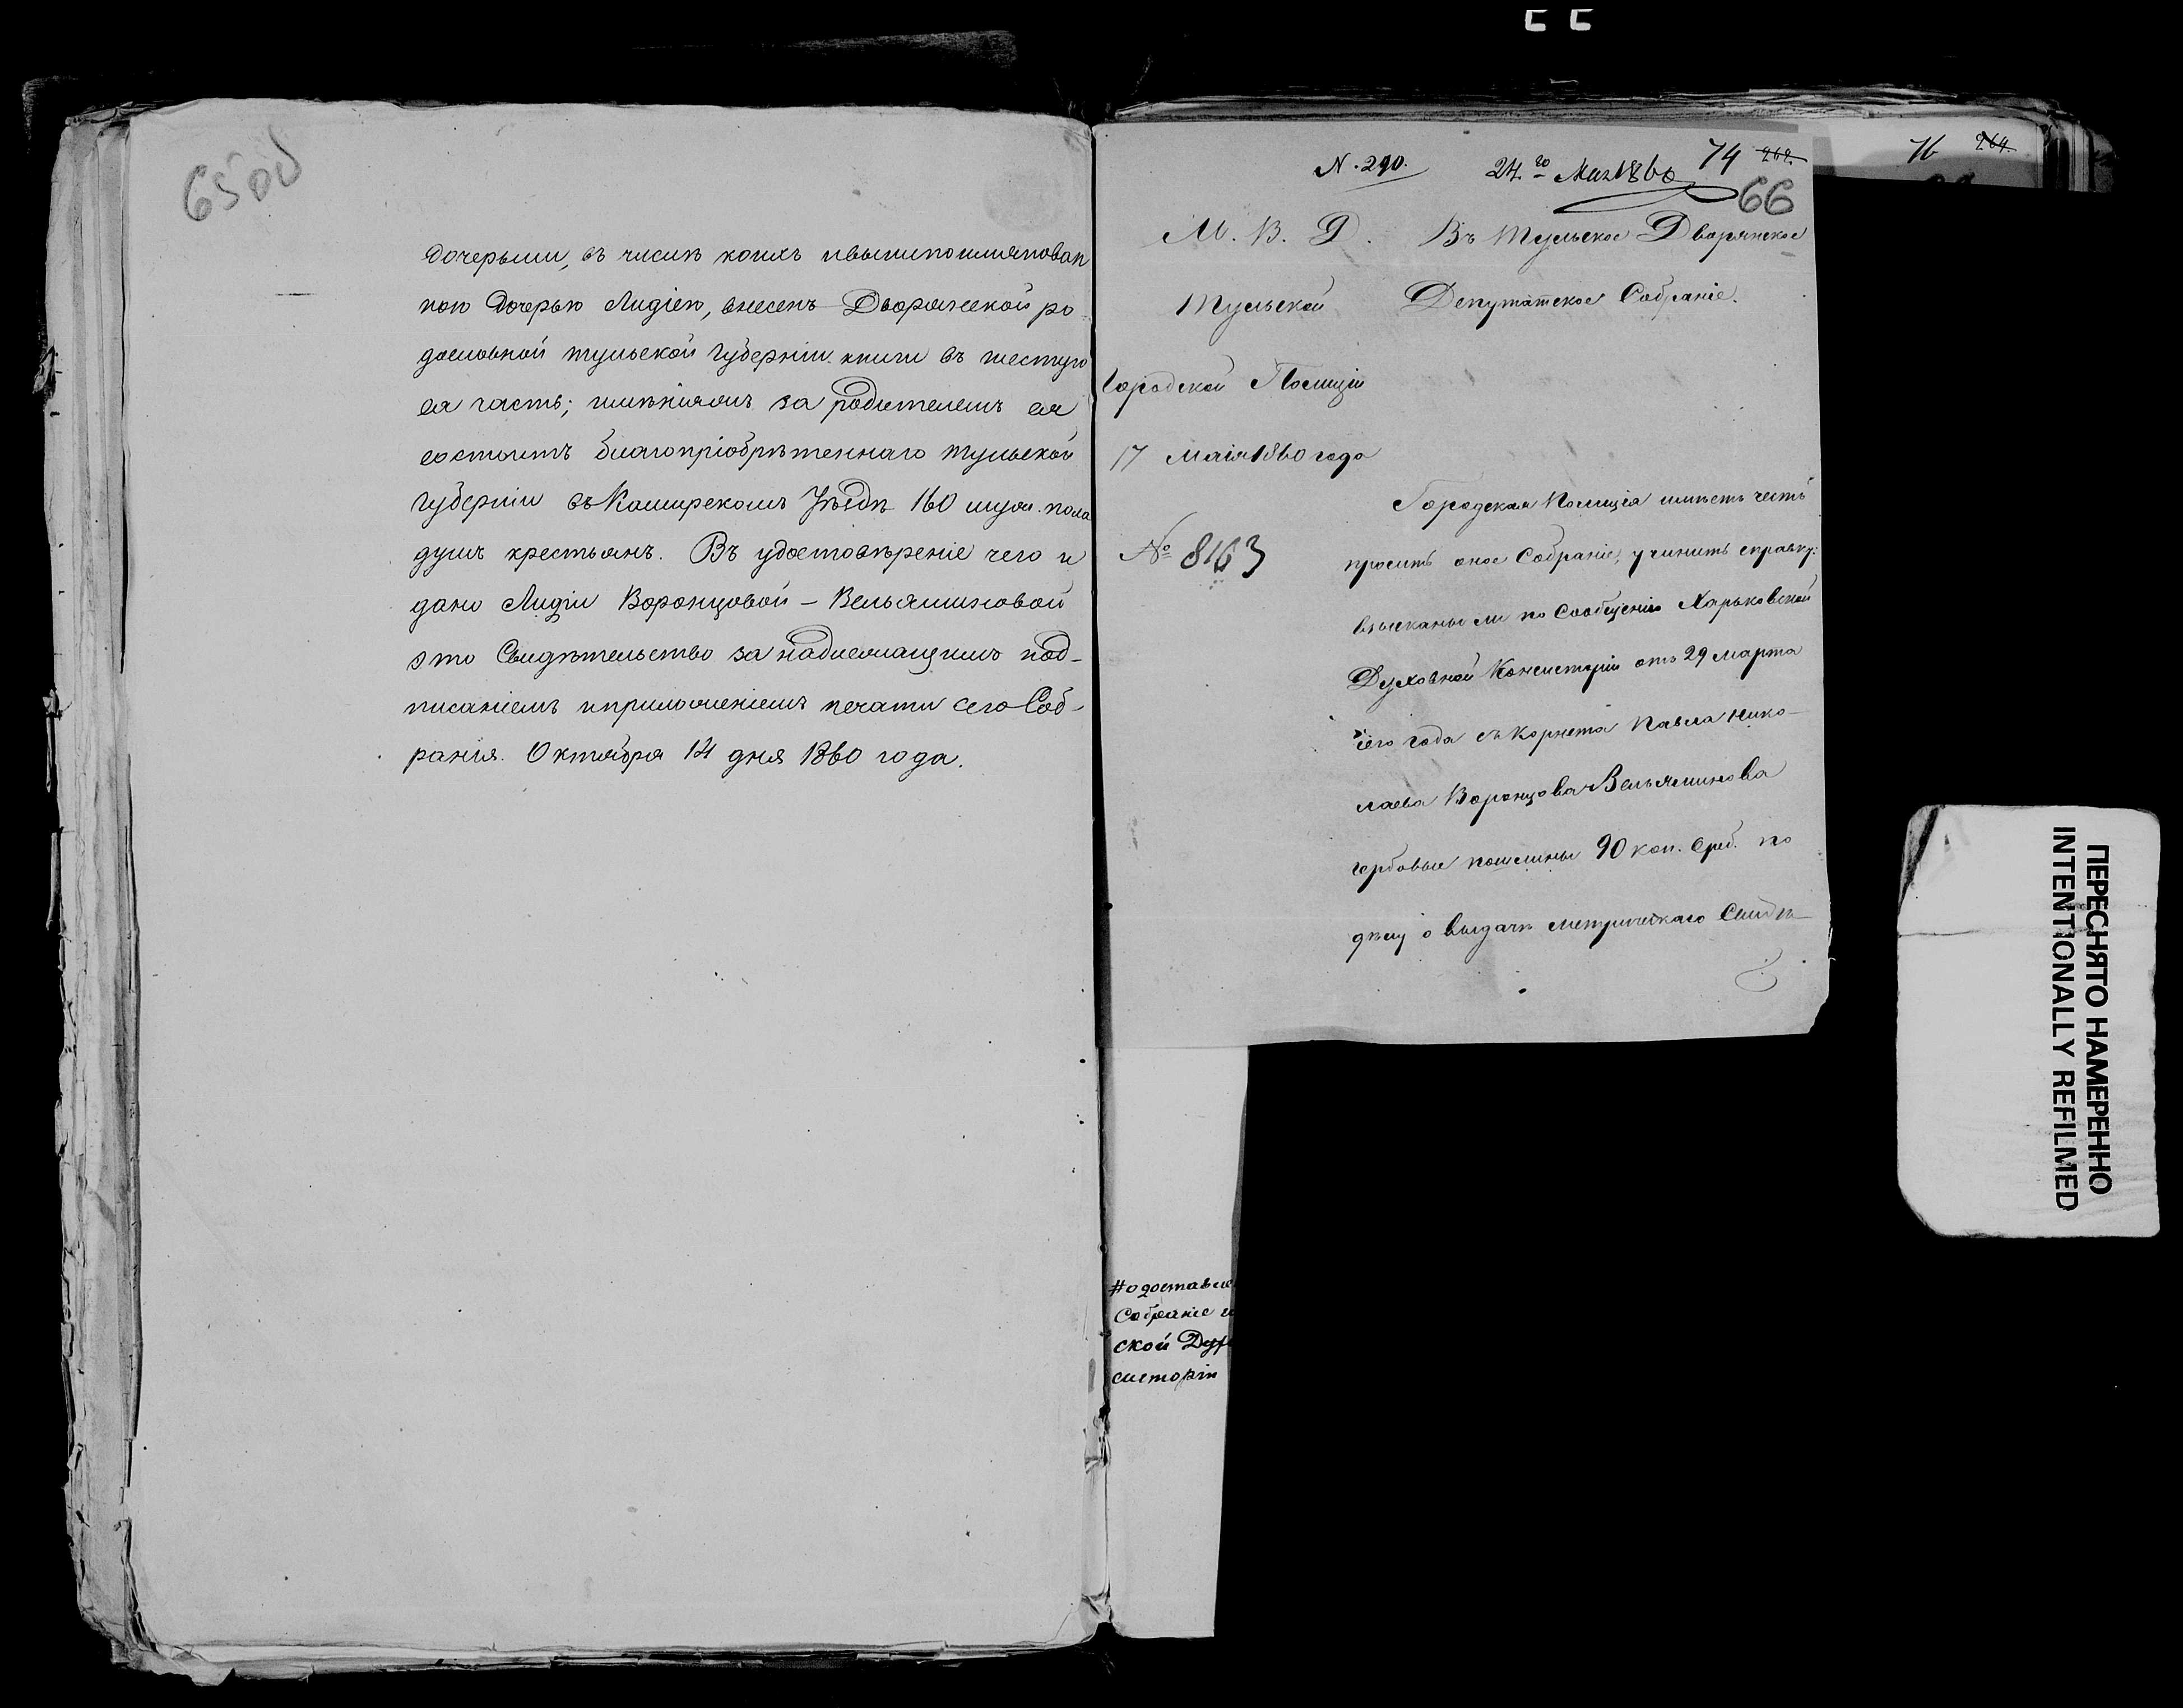 65об
дочерьми, въ числѣ коихъ и вышепоимянован
ною дочерью Лидіею, внесенъ Дворянской ро
дословной Тульской Губерніи книги въ шестую
ея часть; имѣніямъ за родителемъ ея
состоитъ благопріобрѣтеннаго Тульской
Губерніи въ Каширскомъ Уѣздѣ 160 муж. пола
душъ крестьянъ. Въ удостовѣреніе чего и
дано Лидіи Воронцовой - Вельяминовой
это Свидѣтельство за надлежащимъ под-
писаніемъ и приложеніемъ печати сего Соб-
ранія. Октября 14 дня 1860 года.
N. 290.
24.го Мая 1860
74
264.
66
76
264.
М. В. Д.
Тульской
Городской Полиціи
17 Маія 1860 года
№ 8163
Въ Тульское Дворянское
Депутатское Собраніе.
Городская Полиція имѣетъ честь
просить оное Собраніе, учинить справку:
взысканы ли по Сообщенію Харьковской
Духовной Консисторіи отъ 29 марта
сего года съ Корнета Павла Нико-
лаева Воронцова Вельяминова
гербовые пошлины 90 коп. Сереб. по
дѣлу о выдачѣ метрическаго Свидѣ-
# о доставле
Собраніе
ской Дух
систоріи
ПЕРЕСНЯТО НАМЕРЕННО
INTENTIONALLY REFILMED